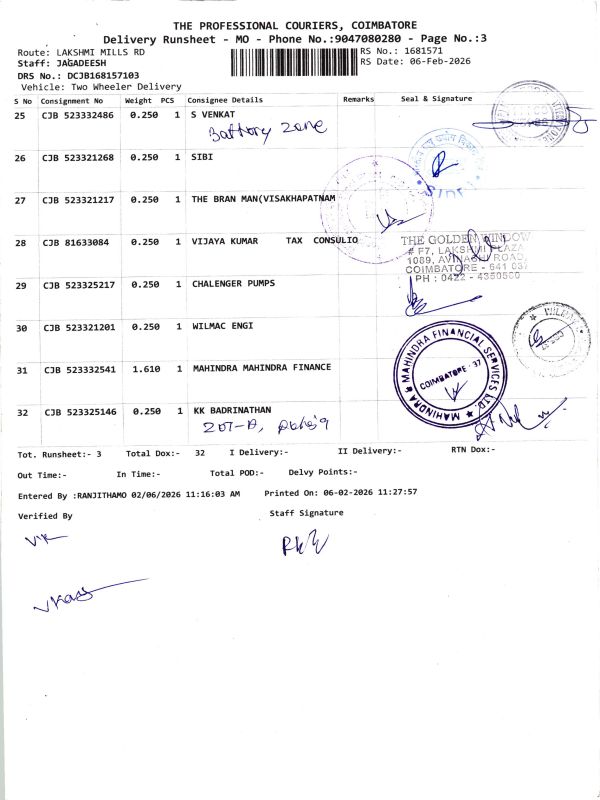 THE PROFESSIONAL COURIERS, COIMBATORE
Delivery Runsheet - MO - Phone No.:9047080280 - Page No.:3
Route: LAKSHMI MILLS RD
RS No.: 1681571
Staff: JAGADEESH
RS Date: 06-Feb-2026
DRS No.: DCJB168157103
Vehicle: Two Wheeler Delivery
S No Consignment No Weight PCS Consignee Details Remarks Seal & Signature
25 CJB 523332486 0.250 1 S VENKAT
Battery zone
26 CJB 523321268 0.250 1 SIBI
27 CJB 523321217 0.250 1 THE BRAN MAN(VISAKHAPATNAM
28 CJB 81633084 0.250 1 VIJAYA KUMAR TAX CONSULIO
THE GOLDEN WINDOW
# F7, LAKSHMI PLAZA
1089, AVINASHI ROAD,
COIMBATORE - 641 037
PH : 0422 - 4350500
29 CJB 523325217 0.250 1 CHALENGER PUMPS
30 CJB 523321201 0.250 1 WILMAC ENGI
31 CJB 523332541 1.610 1 MAHINDRA MAHINDRA FINANCE
MAHINDRA & MAHINDRA FINANCIAL SERVICES LTD.
COIMBATORE - 37
32 CJB 523325146 0.250 1 KK BADRINATHAN
Tot. Runsheet:- 3 Total Dox:- 32 I Delivery:- II Delivery:- RTN Dox:-
Out Time:- In Time:- Total POD:- Delvy Points:-
Entered By :RANJITHAMO 02/06/2026 11:16:03 AM Printed On: 06-02-2026 11:27:57
Verified By Staff Signature